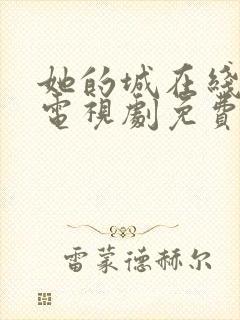 她的城在綫
電視劇免費
雷蒙德赫尔